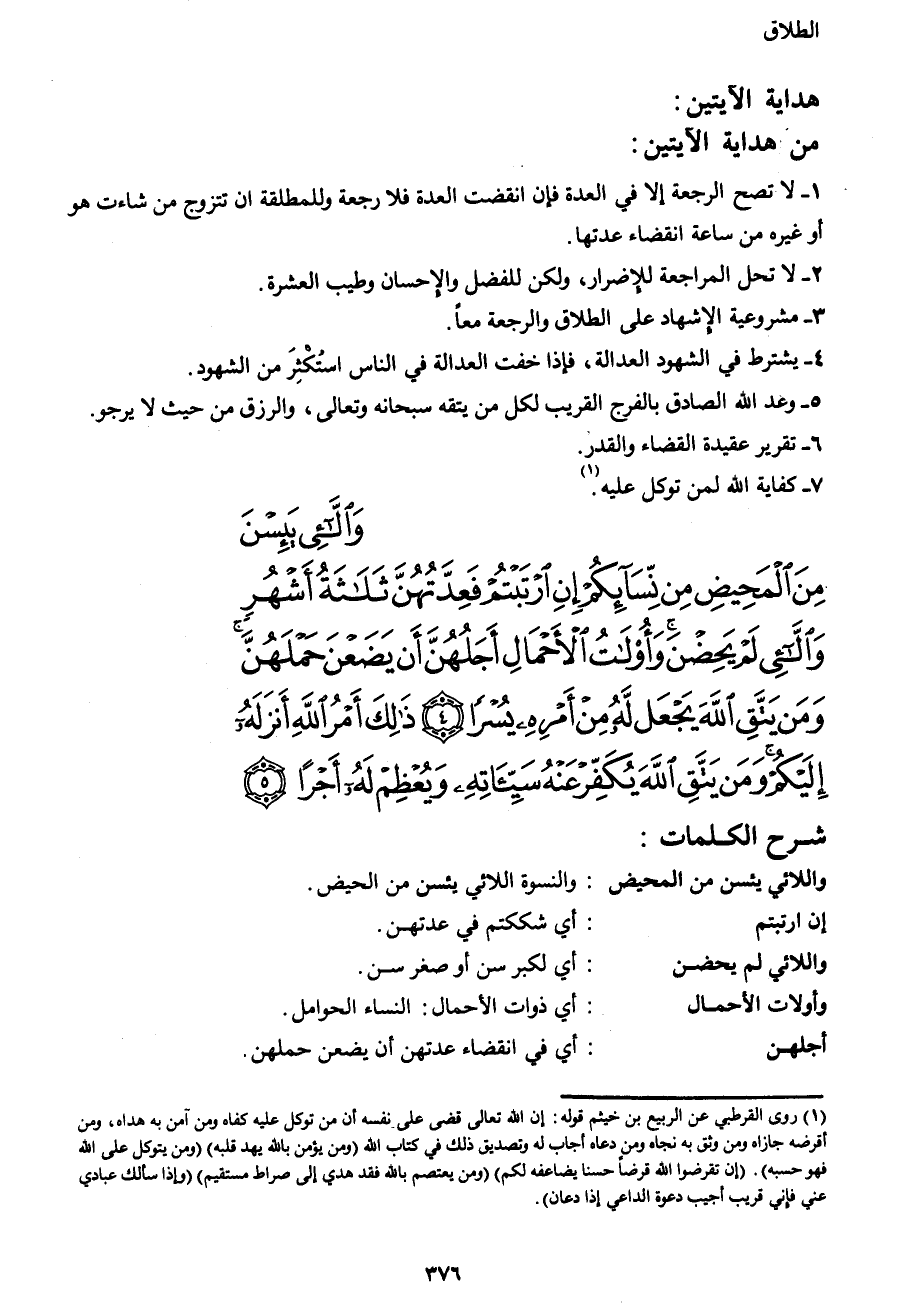 الطلاق
هداية الآيتين:
من هداية الآيتين:
١ـ لا تصح الرجعة إلا في العدة فإن انقضت العدة فلا رجعة وللمطلقة ان تتزوج من شاءت هو
أو غيره من ساعة انقضاء عدتها.
٢ـ لا تحل المراجعة للإضرار، ولكن للفضل والإحسان وطيب العشرة.
٣ـ مشروعية الإشهاد على الطلاق والرجعة معاً.
٤ـ يشترط في الشهود العدالة، فإذا خفت العدالة في الناس استُكْثِرَ من الشهود.
٥ـ وعد الله الصادق بالفرج القريب لكل من يتقه سبحانه وتعالى، والرزق من حيث لا يرجو.
٦ـ تقرير عقيدة القضاء والقدر.
٧ـ كفاية الله لمن توكل عليه.(١)
وَٱلَّٰٓـِٔى يَئِسۡنَ
مِنَ ٱلۡمَحِيضِ مِن نِّسَآئِكُمۡ إِنِ ٱرۡتَبۡتُمۡ فَعِدَّتُهُنَّ ثَلَٰثَةُ أَشۡهُرٖ
وَٱلَّٰٓـِٔى لَمۡ يَحِضۡنَۚ وَأُوْلَٰتُ ٱلۡأَحۡمَالِ أَجَلُهُنَّ أَن يَضَعۡنَ حَمۡلَهُنَّۚ
وَمَن يَتَّقِ ٱللَّهَ يَجۡعَل لَّهُۥ مِنۡ أَمۡرِهِۦ يُسۡرٗا ٤ ذَٰلِكَ أَمۡرُ ٱللَّهِ أَنزَلَهُۥٓ
إِلَيۡكُمۡۚ وَمَن يَتَّقِ ٱللَّهَ يُكَفِّرۡ عَنۡهُ سَيِّـَٔاتِهِۦ وَيُعۡظِمۡ لَهُۥٓ أَجۡرًا ٥
شرح الكلمات:
واللائي يئسن من المحيض : والنسوة اللائي يئسن من الحيض.
إن ارتبتم : أي شككتم في عدتهن.
واللائي لم يحضن : أي لكبر سن أو صغر سن.
وأولات الأحمال : أي ذوات الأحمال: النساء الحوامل.
أجلهن : أي في انقضاء عدتهن أن يضعن حملهن.
(١) روى القرطبي عن الربيع بن خيثم قوله: إن الله تعالى قضى على نفسه أن من توكل عليه كفاه ومن آمن به هداه، ومن
أقرضه جازاه ومن وثق به نجاه ومن دعاه أجاب له وتصديق ذلك في كتاب الله (ومن يؤمن بالله يهد قلبه) (ومن يتوكل على الله
فهو حسبه). (إن تقرضوا الله قرضاً حسنا يضاعفه لكم) (ومن يعتصم بالله فقد هدي إلى صراط مستقيم) (وإذا سألك عبادي
عني فإني قريب أجيب دعوة الداعي إذا دعان).
٣٧٦